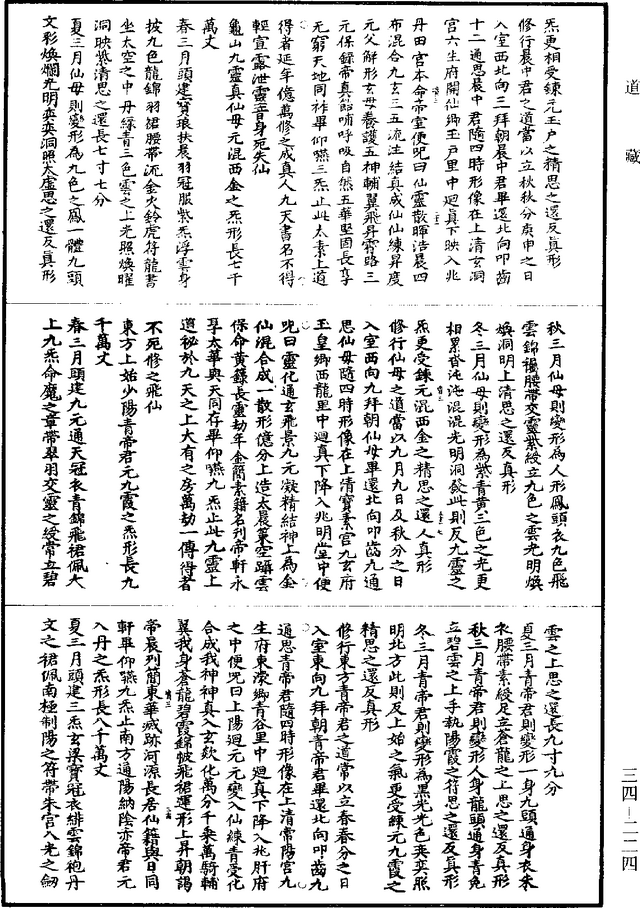 道藏
炁更相受鍊元玉户之精思之還反真形
修行晨中君之道當以立秋秋分庚申之日
入室西北向三拜朝晨中君畢還北向叩齒
十二通思晨中君隨四時形像在上清玄洞
宮六生府開仙鄉玉户里中廻真下映入兆
丹田宮本命帝室便呪曰仙靈散暉浩晨四
布混合九玄三五流注結真成仙仙練昇度
元父解形玄母養護五神輔翼飛丹霄路三
元保録帝真節哺呼吸自然五華堅固長享
无窮天地同祚畢仰嚥三炁止此太素上道
得者延年億萬修之成真人九天書名不得
輕宣露泄靈音身死失仙
龜山九靈真仙母元混西金之炁形長七千
萬丈
春三月頭建寶琅扶晨羽冠服紫炁浮雲身
披九色龍錦羽裙腰帶流金火鈴虎符龍書
坐太空之中丹緑青三色雲之上光照煥曜
洞映紫清思之還長七寸七分
夏三月仙母則變形為九色之鳳一體九頭
文彩煥爛光明奕奕洞照太虛思之還反真形
秋三月仙母則變形為人形鳳頭衣九色飛
雲錦襡腰帶交靈紫綬立九色之雲光明煥
煥洞明上清思之還反真形
冬三月仙母則變形為紫青黄三色之光更
相累沓沌沌混混光明洞發此則反九靈之
炁更受錬元混西金之精思之還人真形
修行仙母之道當以九月九日及秋分之日
入室西向九拜朝仙母畢還北向叩齒九通
思仙母隨四時形像在上清寶素宮九玄府
玉皇鄉西龍里中廻真下降入兆明堂中便
呪曰靈化通玄飛景九元凝精結神上為金
仙混合成一散形億分上造太晨策空躡雲
保命黄籙長靈劫年金簡素籍名列帝軒永
享太華與天同存畢仰嚥九炁止此九靈上
道祕於九天之上大有之房萬劫一傳得者
不死修之飛仙
東方上始少陽青帝君元九霞之炁形長九
千萬丈
春三月頭建九元通天冠衣青錦飛裙佩大
上九炁命魔之章帶翠羽交靈之綬常立碧
雲之上思之還長九寸九分
夏三月青帝君則變形一身九頭通身衣朱
衣腰帶素綬足立蒼龍之上思之還反真形
秋三月青帝君則變形人身龍頭通身青色
立碧雲之上手執陽霞之符思之還反真形
冬三月青帝君則變形為黑光光色奕奕照
明北方此則反上始之氣更受練元九霞之
精思之還反真形
修行東方青帝君之道常以立春春分之日
入室東向九拜朝青帝君畢還北向叩齒九
通思青帝君隨四時形像在上清常陽宮九
生府東濛鄉青谷里中廻真下降入兆肝府
之中便呪曰上陽廻元元變入仙練青受化
合成我神神真入玄欻化萬分千乘萬騎輔
翼我身蒼龍碧霞錦帔飛裙運形上昇朝謁
帝晨列簡東華滅跡河源長居仙籍與日同
軒畢仰嚥九炁止南方通陽納陰赤帝君元
入丹之炁形長八千萬丈
夏三月頭建三炁玄梁寶冠衣緋雲錦袍丹
文之裙佩南極制陽之符帶朱宮入光之劒
三四—二二四